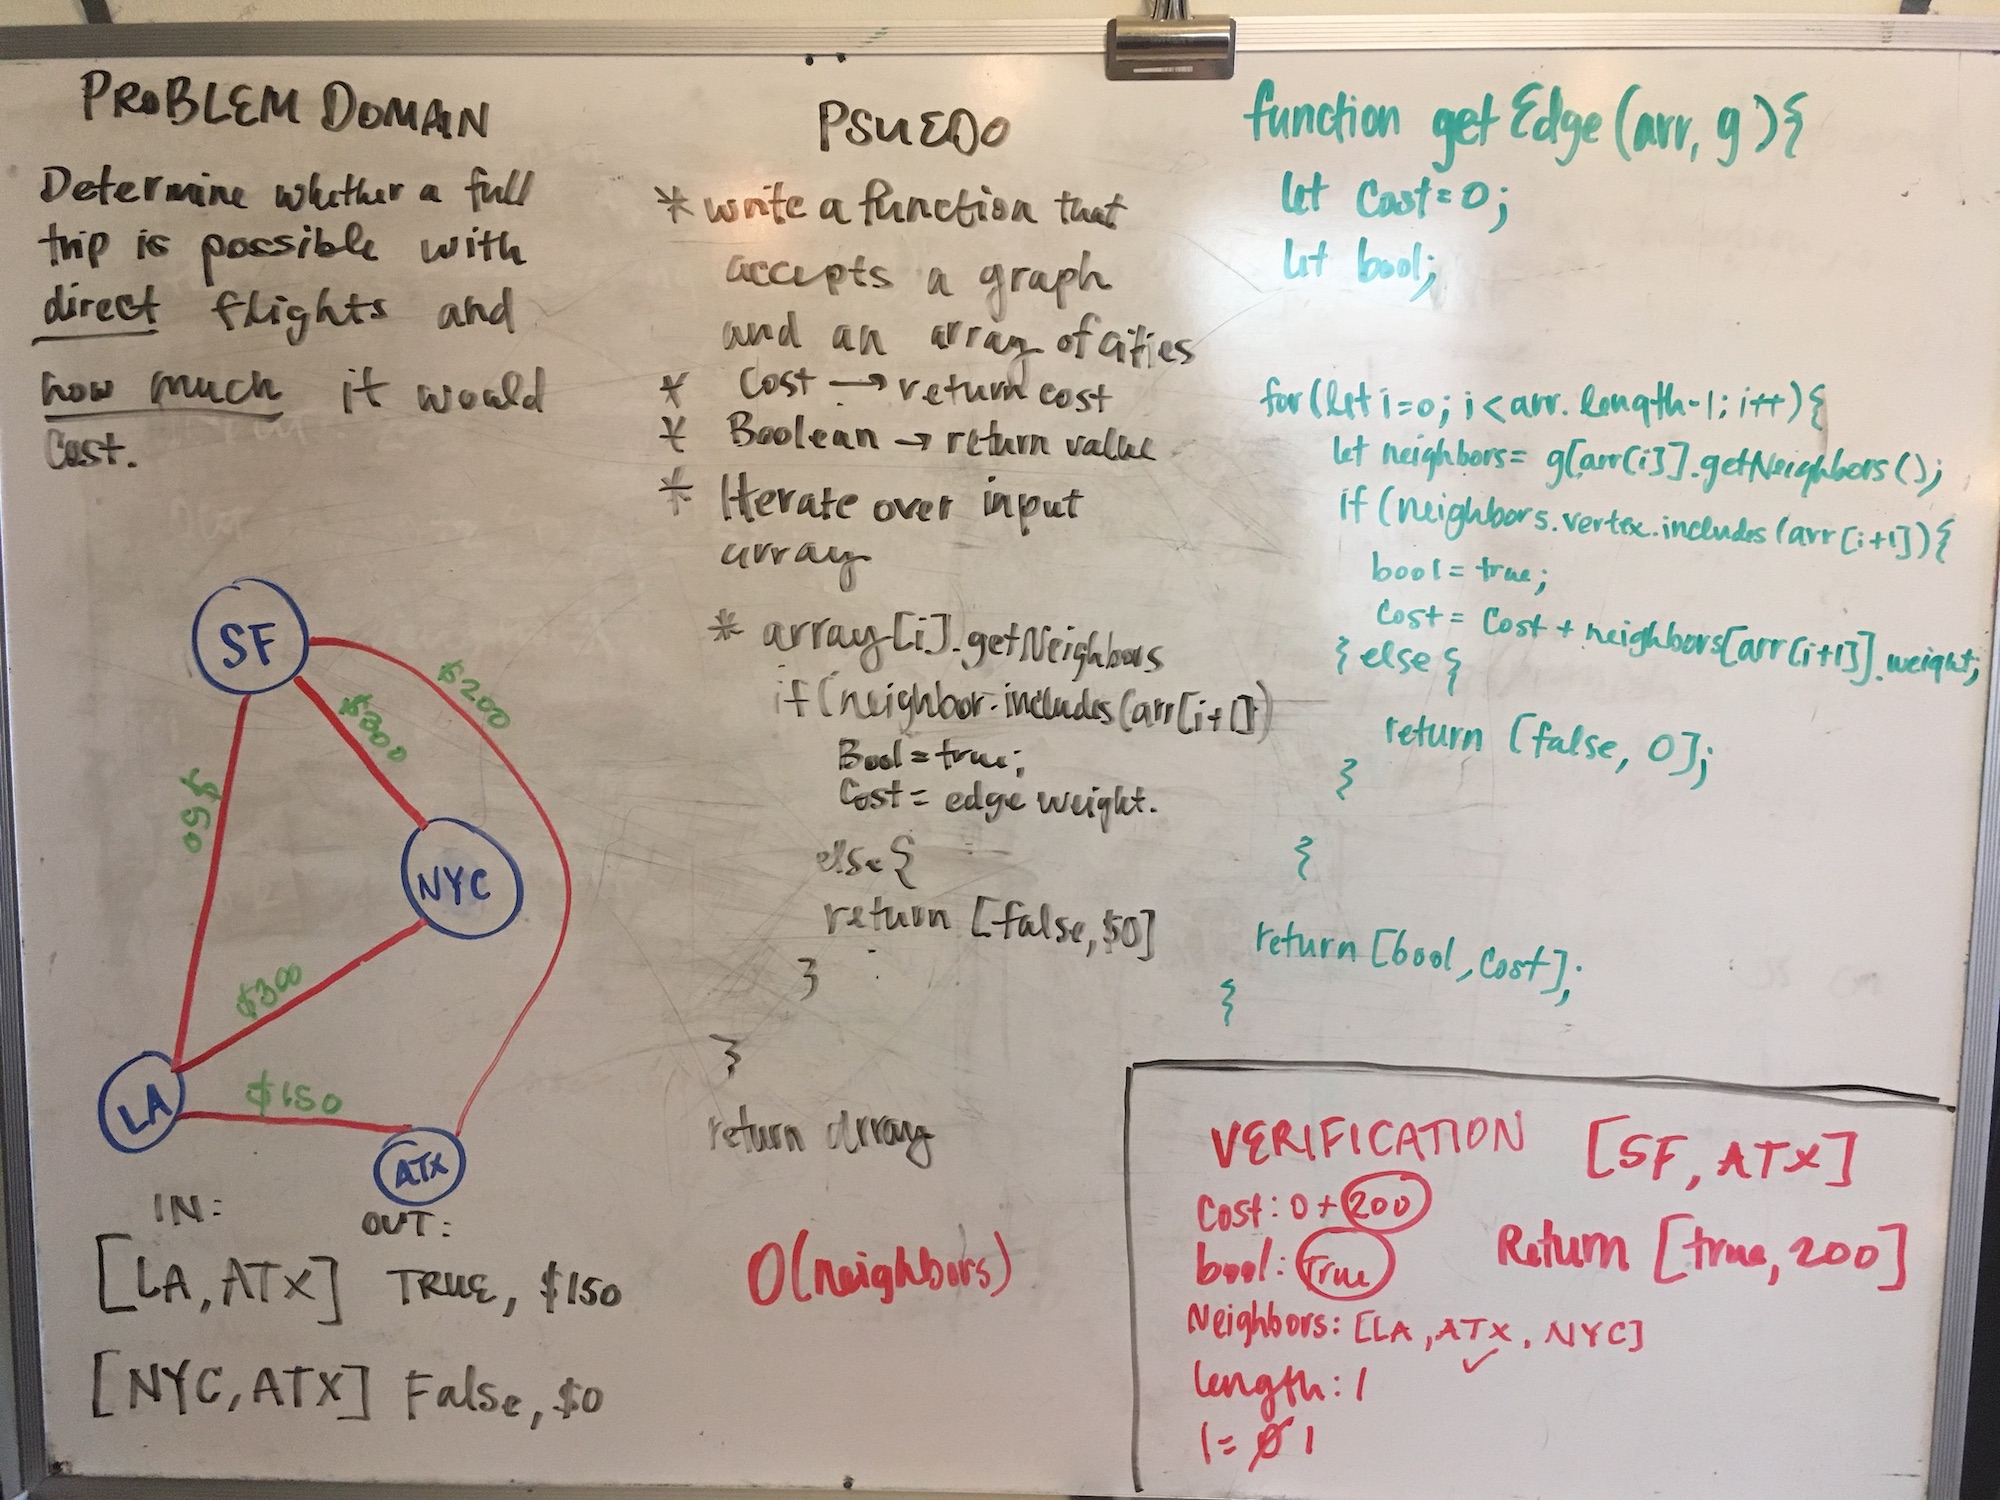 PROBLEM DOMAIN
Determine whether a full
trip is possible with
direct flights and
how much it would
cost.
SF
$200
$300
$50
NYC
$300
LA
$150
ATX
IN:
OUT:
[LA, ATX] TRUE, $150
[NYC, ATX] False, $0
PSUEDO
* write a function that
accepts a graph
and an array of cities
* Cost → return cost
* Boolean → return value
* Iterate over input
array
* array[i].getNeighbors
if (neighbor.includes(arr[i+1])
Bool = true;
Cost = edge weight.
else {
return [false, $0]
}
}
return array
O(neighbors)
function getEdge(arr, g){
let cost = 0;
let bool;
for(let i=0; i<arr.length-1; i++){
let neighbors = g[arr[i]].getNeighbors();
if (neighbors.vertex.includes(arr[i+1]){
bool = true;
Cost = Cost + neighbors[arr[i+1]].weight;
} else {
return [false, 0];
}
}
return [bool, cost];
}
VERIFICATION [SF, ATX]
Cost: 0 + 200
bool: True
Return [true, 200]
Neighbors: [LA, ATX, NYC]
length: 1
1 = 0 1